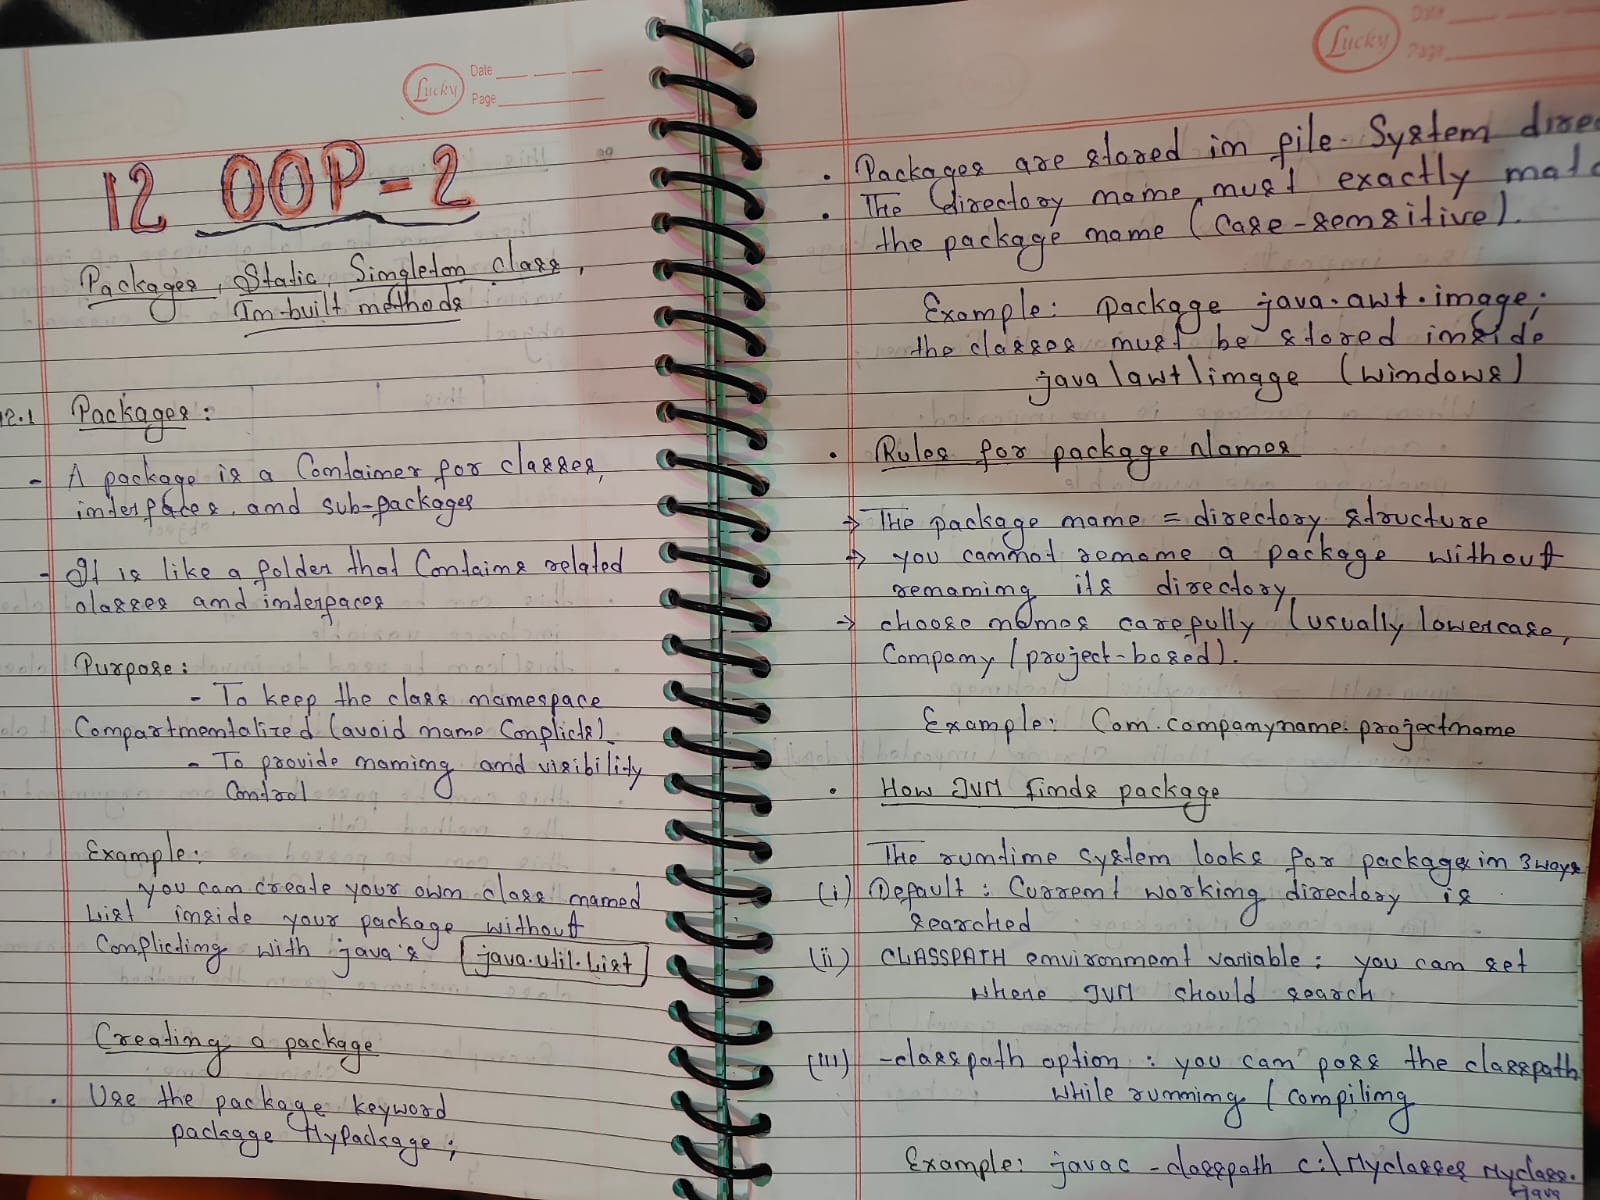 Lucky
Date
Page
12 OOP-2
Packages, Static, Singleton class,
In-built methods
12.1 Packages:
- A package is a Container for classes,
interfaces, and sub-packages
- It is like a folder that Contains related
classes and interfaces
Purpose:
- To keep the class namespace
Compartmentalized (avoid name Conflicts)
- To provide naming and visibility
Control
Example:
you can create your own class named
List inside your package without
Conflicting with java's java.util.List
Creating a package
• Use the package keyword
package MyPackage;
Lucky
Date
Page
• Packages are stored in file-System direc
• The directory name must exactly matc
the package name (Case-sensitive).
Example: package java.awt.image;
the classes must be stored inside
java\awt\image (windows)
• Rules for package Names
→ The package name = directory structure
→ you cannot rename a package without
renaming its directory
→ choose names carefully (usually lowercase,
Company/project-based).
Example: Com.companyname.projectname
• How JVM finds package
The runtime system looks for packages in 3 ways
(i) Default: Current working directory is
searched
(ii) CLASSPATH environment variable: you can set
where JVM should search
(iii) -classpath option: you can pass the classpath
while running/compiling
Example: javac -classpath c:\Myclasses Myclass.
java